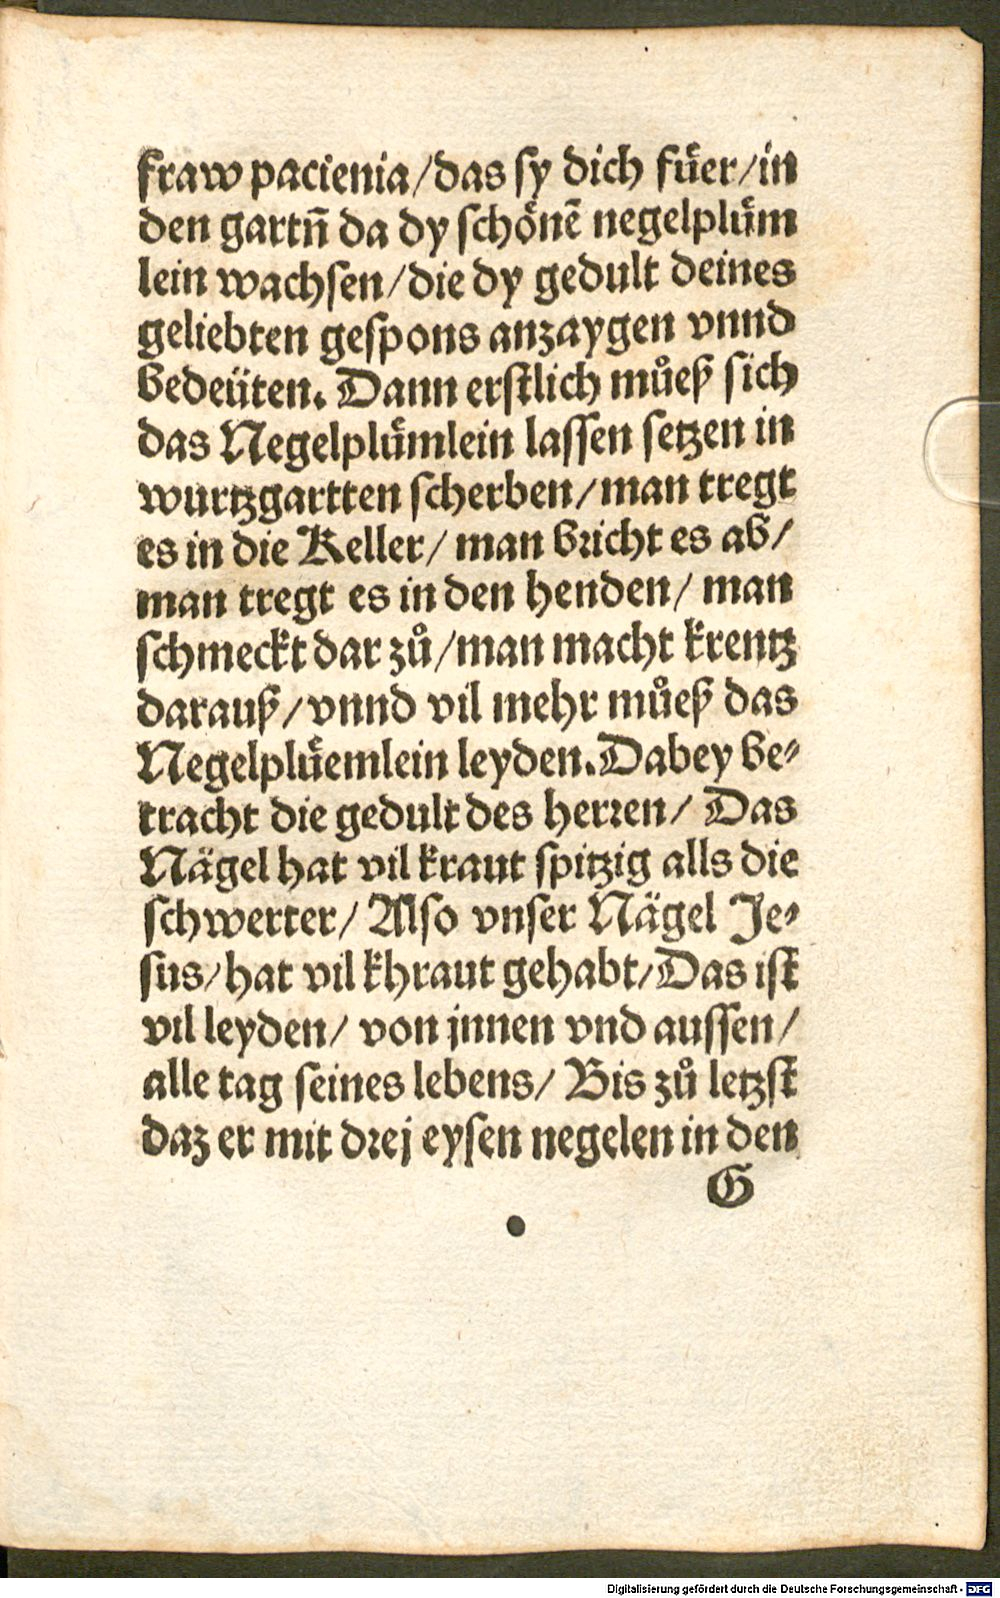 fraw pacienia/das sy dich fuͤer/in
den gartn̄ da dy schoͤnē negelpluͤm
lein wachsen/die dy gedult deines
geliebten gespons anzaygen vnnd
bedeüten. Dann erstlich muͦeß sich
das Negelpluͤmlein lassen setzen in
wurtzgartten scherben/man tregt
es in die Keller/ man bricht es ab/
man tregt es in den henden/ man
schmeckt dar zuͦ/man macht krentz
darauß/vnnd vil mehr muͦeß das
Negelpluͤemlein leyden. Dabey be⸗
tracht die gedult des herren/ Das
Nägel hat vil kraut spitzig alls die
schwerter/ Also vnser Nägel Je⸗
sus/hat vil khraut gehabt/Das ist
vil leyden/ von jnnen vnd aussen/
alle tag seines lebens/ Bis zuͦ letzst
daz er mit drej eysen negelen in den
G
Digitalisierung gefördert durch die Deutsche Forschungsgemeinschaft - DFG